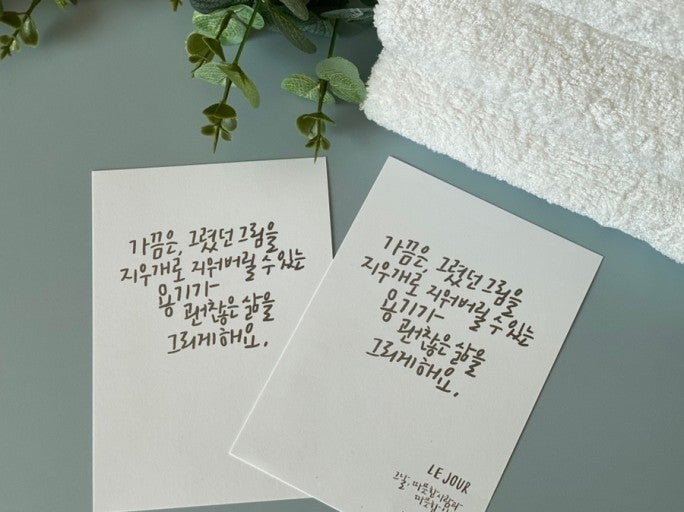 가끔은, 그렸던 그림을
지우개로 지워버릴 수 있는
용기가
괜찮은 삶을
그리게 해요.
가끔은, 그렸던 그림을
지우개로 지워버릴 수 있는
용기가
괜찮은 삶을
그리게 해요.
LE JOUR
그날, 따뜻한 사람과
따뜻한